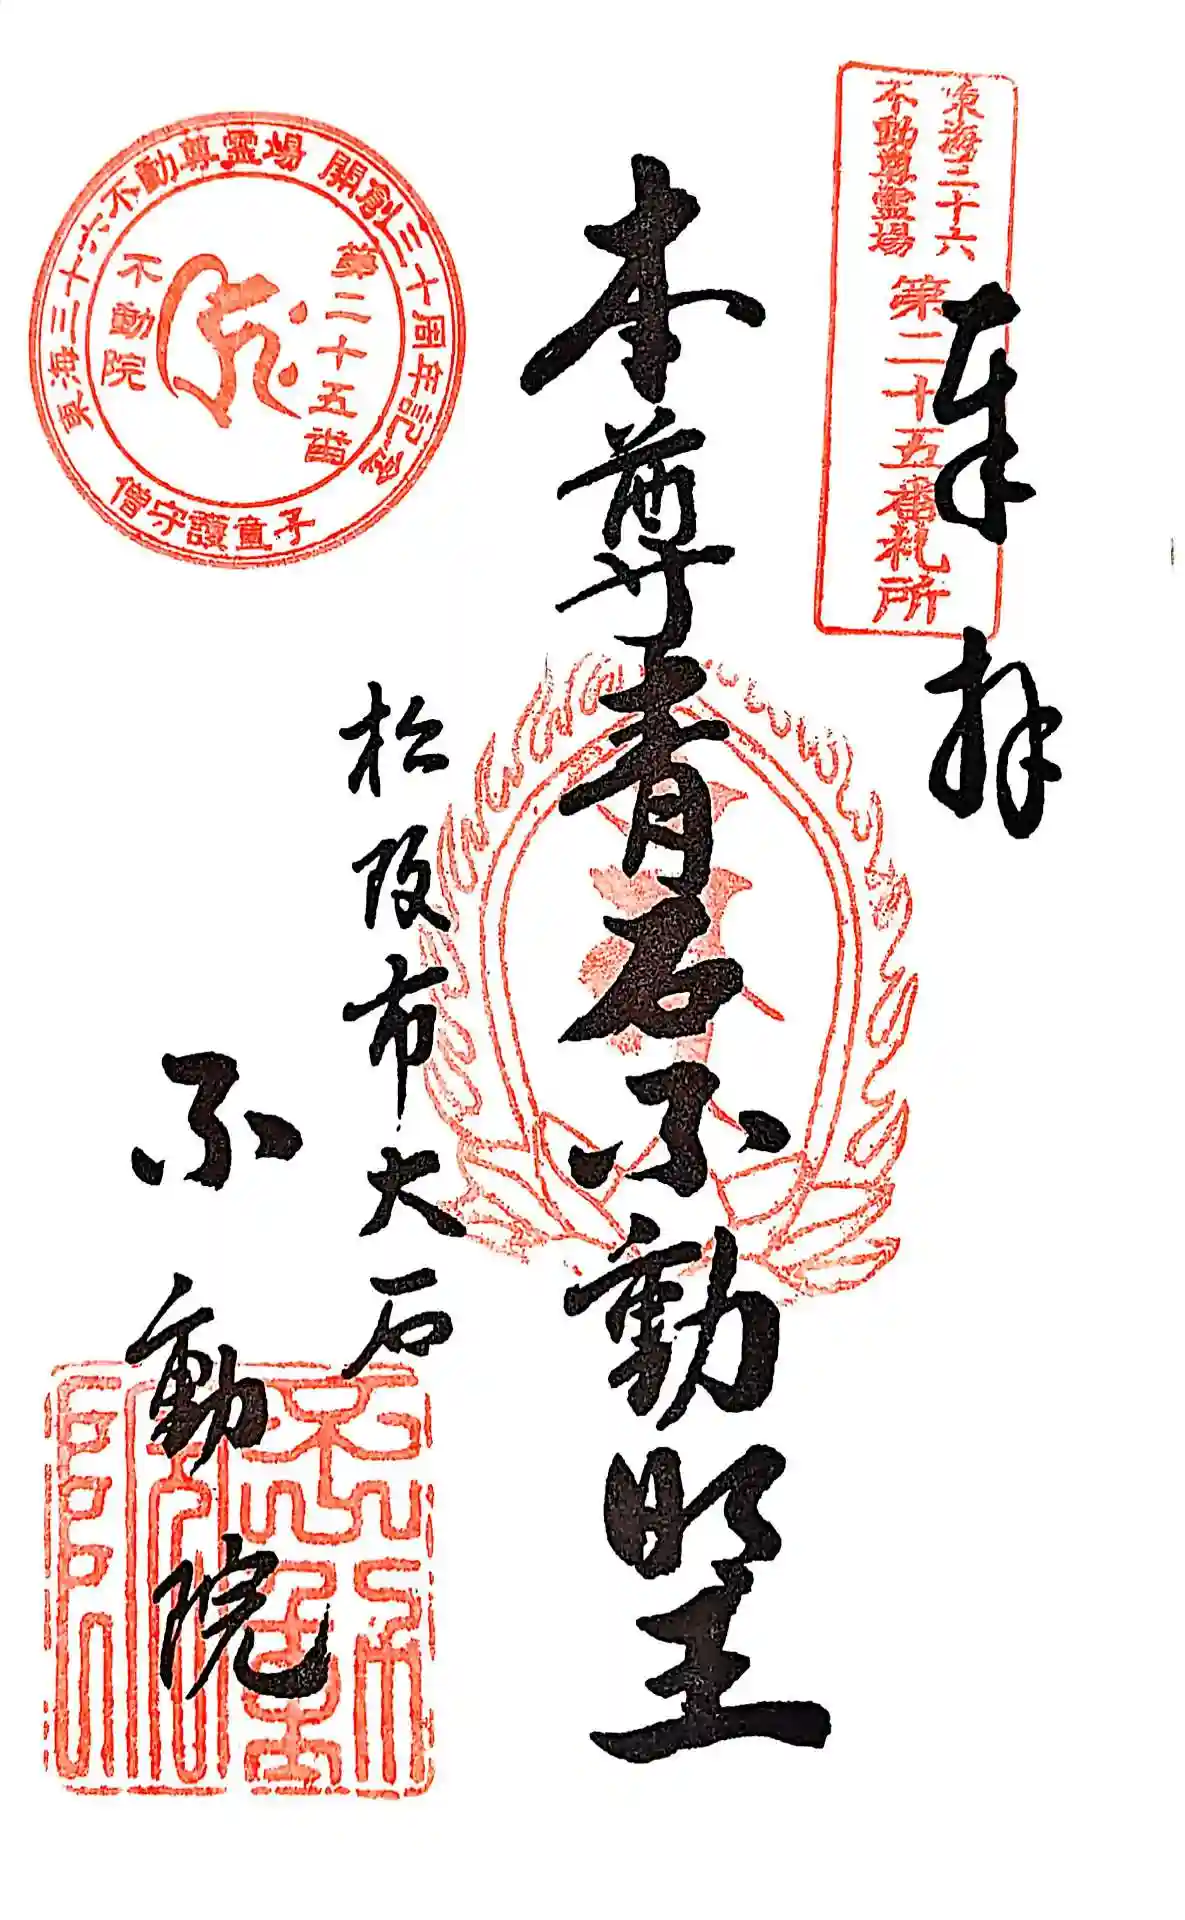 東海三十六
不動尊霊場
第二十五番札所
奉拝
本尊青石不動明王
松阪市大石
不動院
東海三十六不動尊霊場 開創三十周年記念
第二十五番
不動院
僧守護童子